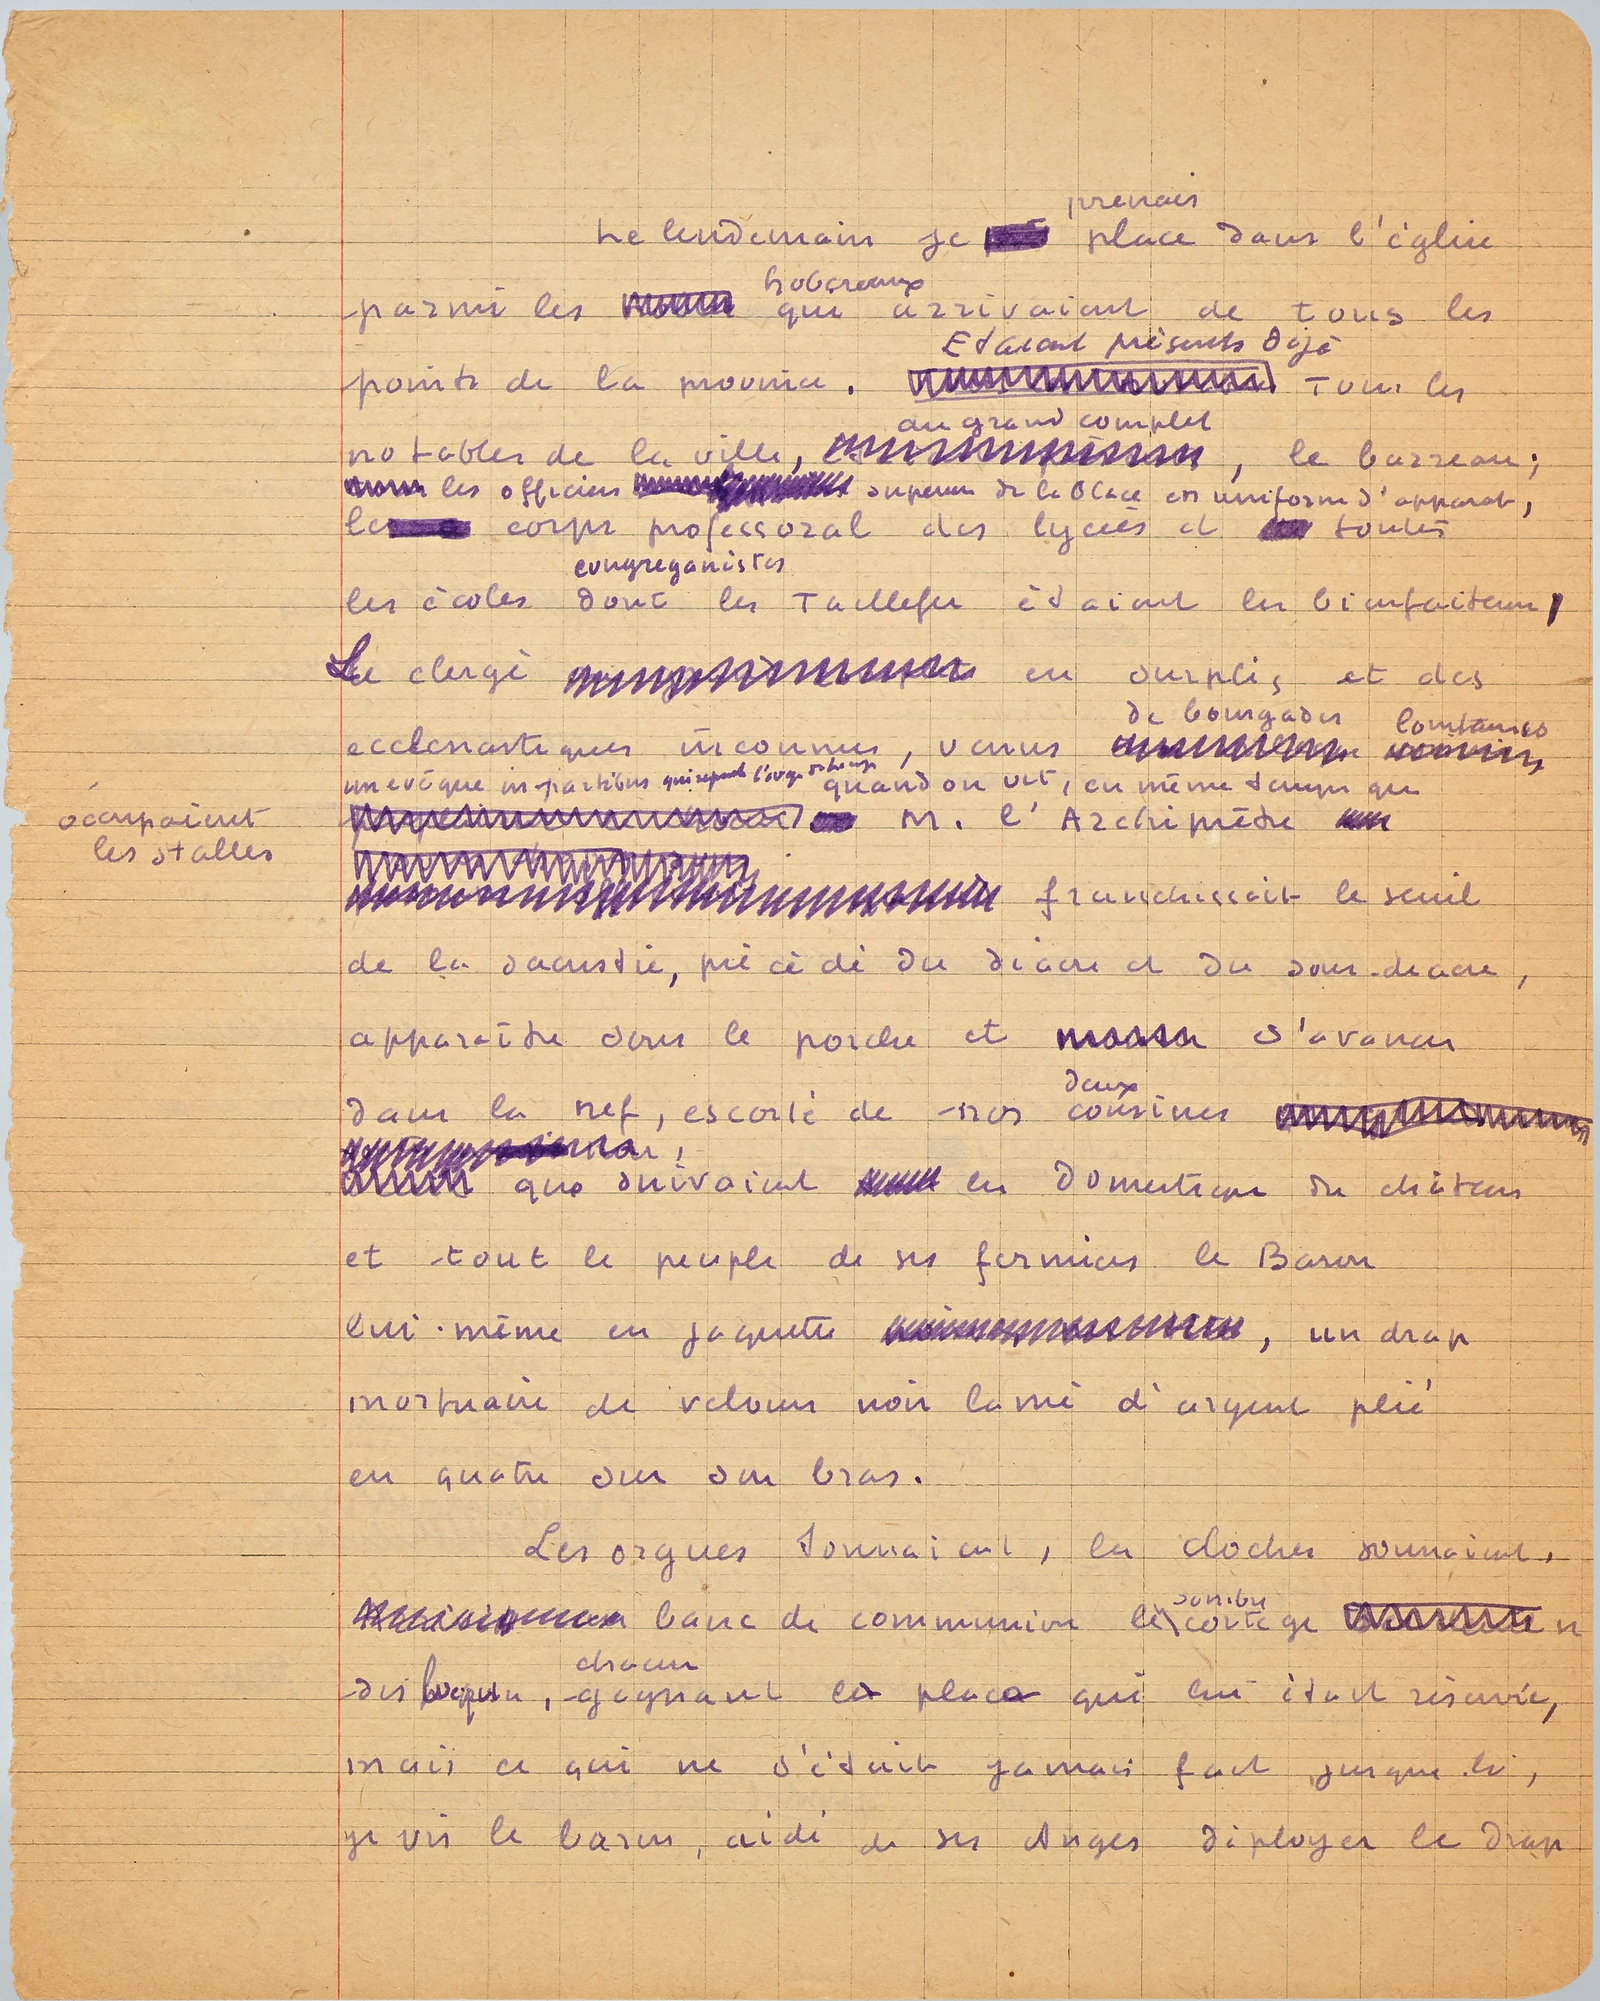 prenais
Le lendemain je place dans l'église
hobereaux
parmi les qui arrivaient de tous les
Etaient présents déjà
points de la province. Tous les
au grand complet
notables de la ville, , le barreau;
les officiers superieurs de la Place en uniforme d'apparat,
le corps professoral des lycées et toutes
congreganistes
les écoles dont les Taillefer étaient les bienfaiteurs,
Le clergé en surplis et des
de bourgades lointaines
ecclesiastiques inconnus, venus
un evêque in-partibus quand on vit, en même temps que
occupaient
les stalles
M. l'Archiprêtre
franchissait le seuil
de la sacristie, précédé du diacre et du sous-diacre,
apparaître sous le porche et s'avancer
deux
dans la nef, escorté de nos cousines
que suivaient les domestiques du château
et tout le peuple de ses fermiers le Baron
lui-même en jaquette , un drap
mortuaire de velours noir lamé d'argent plié
en quatre sur son bras.
Les orgues tonnaient, les cloches sonnaient,
sombre
banc de communion le cortège
chacun
gagnant la place qui lui était réservée,
mais ce qui ne s'était jamais fait jusque là,
je vis le baron, aidé de ses Anges déployer le drap